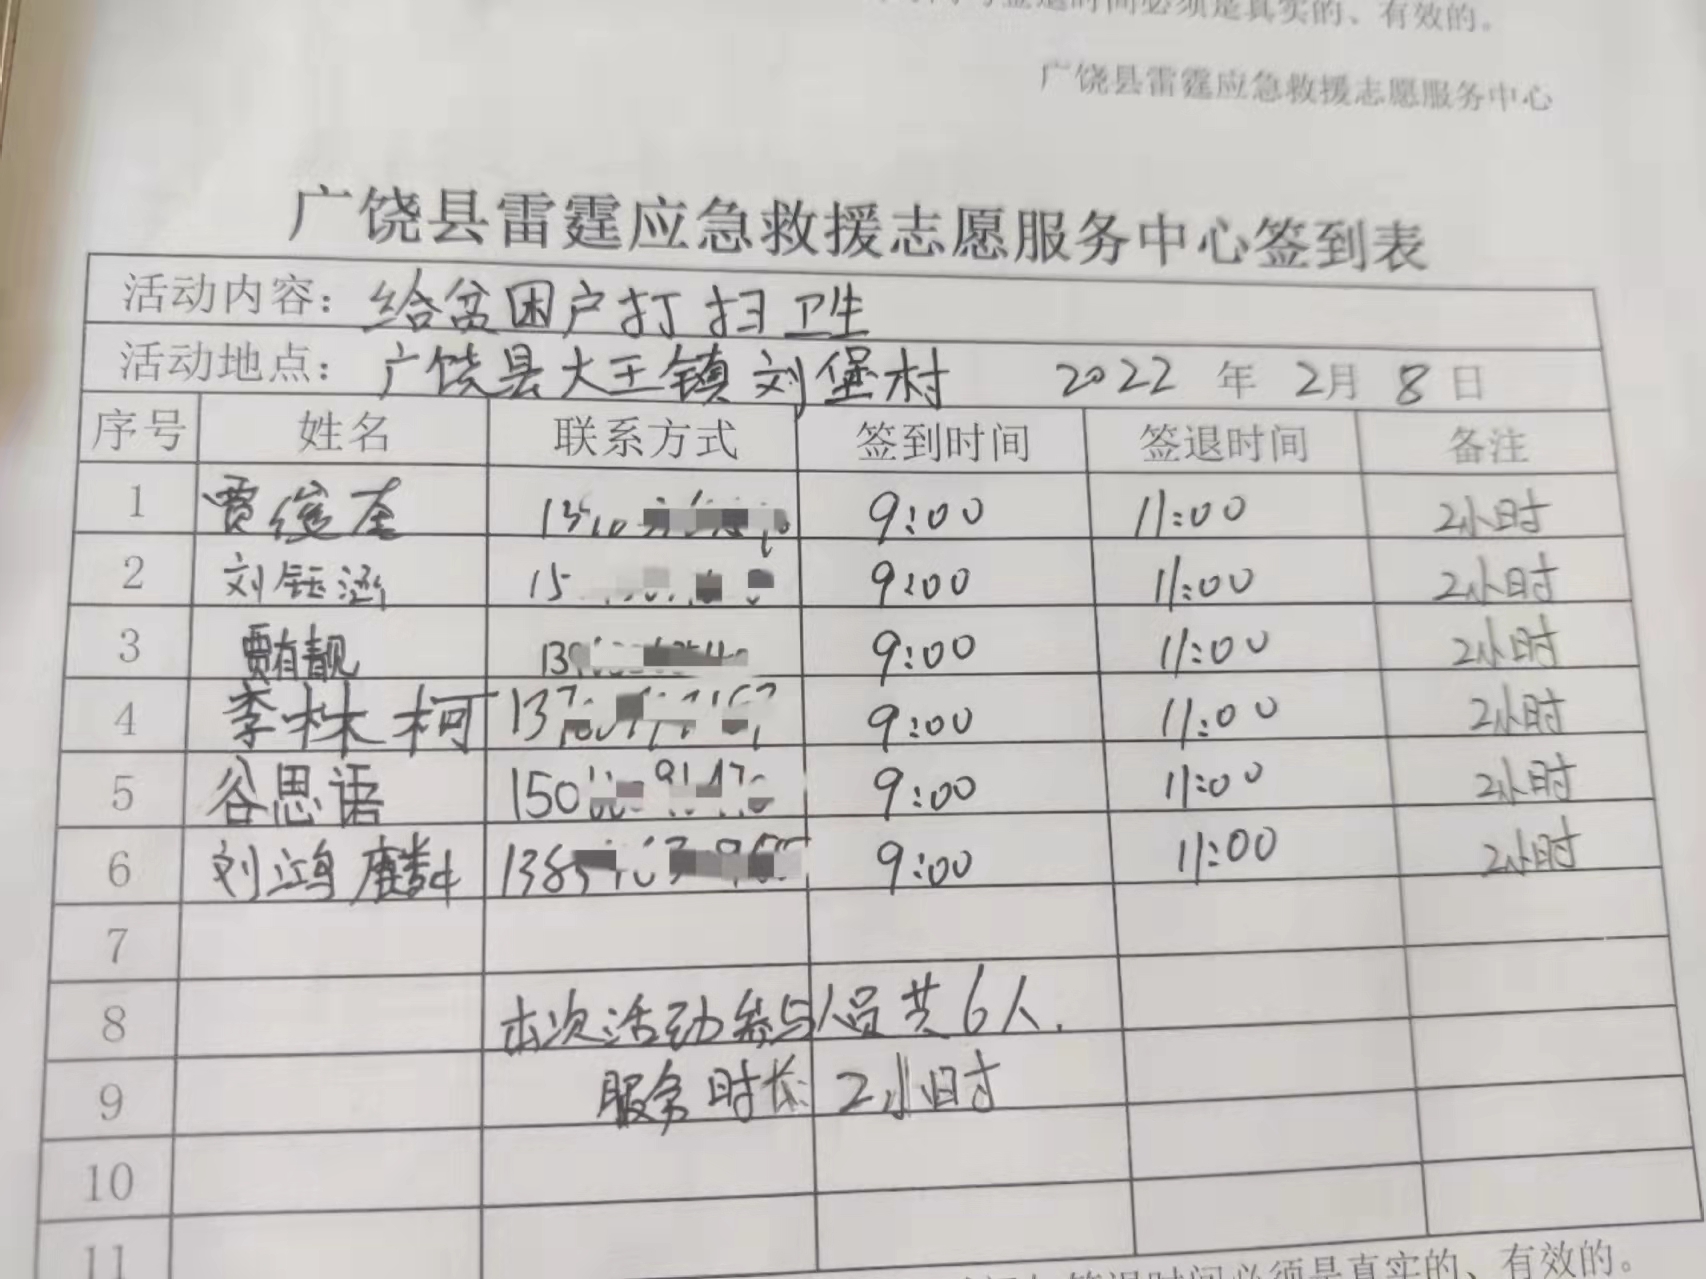 签退时间必须是真实的、有效的。
广饶县雷霆应急救援志愿服务中心
广饶县雷霆应急救援志愿服务中心签到表
活动内容：给贫困户打扫卫生
活动地点：广饶县大王镇刘堡村 2022 年 2月 8 日
序号 姓名 联系方式 签到时间 签退时间 备注
1 贾俊奎 9:00 11:00 2小时
2 刘钰涵 15 9:00 11:00 2小时
3 贾有靓 13 9:00 11:00 2小时
4 李林柯 137 9:00 11:00 2小时
5 谷思语 150 9:00 11:00 2小时
6 刘鸿麟 138 9:00 11:00 2小时
7
8 本次活动参与人员共6人.
9 服务时长: 2小时
10
11
签退时间必须是真实的、有效的。